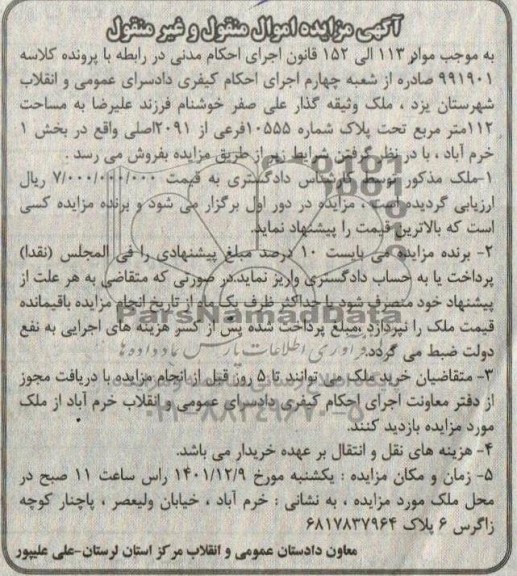 آگهی مزایده اموال منقول و غیر منقول
به موجب مواد ۱۱۳ الی ۱۵۲ قانون اجرای احکام مدنی در رابطه با پرونده کلاسه
۹۹۱۹۰۱ صادره از شعبه چهارم اجرای احکام کیفری دادسرای عمومی و انقلاب
شهرستان یزد ، ملک وثیقه گذار علی صفر خوشنام فرزند علیرضا به مساحت
۱۱۲متر مربع تحت پلاک شماره ۱۰۵۵۵فرعی از ۲۰۹۱اصلی واقع در بخش ۱
خرم آباد ، با در نظر گرفتن شرایط زیر از طریق مزایده بفروش می رسد .
۱-ملک مذکور توسط کارشناس دادگستری به قیمت ۷/۰۰۰/۰۰۰/۰۰۰ ریال
ارزیابی گردیده است . مزایده در دور اول برگزار می شود و برنده مزایده کسی
است که بالاترین قیمت را پیشنهاد نماید.
۲- برنده مزایده می بایست ۱۰ درصد مبلغ پیشنهادی را فی المجلس (نقدا)
پرداخت یا به حساب دادگستری واریز نماید.در صورتی که متقاضی به هر علت از
پیشنهاد خود منصرف شود یا حداکثر ظرف یک ماه از تاریخ انجام مزایده باقیمانده
قیمت ملک را نپردازد ،مبلغ پرداخت شده پس از کسر هزینه های اجرایی به نفع
ParsNamadData
دولت ضبط می گردد.
فرآوری اطلاعات پارس نماد داده ها
۳- متقاضیان خرید ملک می توانند تا ۵ روز قبل از انجام مزایده با دریافت مجوز
از دفتر معاونت اجرای احکام کیفری دادسرای عمومی و انقلاب خرم آباد از ملک
۰۲۱-۸۸۳۴۹۶۷۰-۵
مورد مزایده بازدید کنند.
۴- هزینه های نقل و انتقال بر عهده خریدار می باشد.
۵- زمان و مکان مزایده : یکشنبه مورخ ۱۴۰۱/۱۲/۹ راس ساعت ۱۱ صبح در
محل ملک مورد مزایده ، به نشانی : خرم آباد ، خیابان ولیعصر ، پاچنار کوچه
زاگرس ۶ پلاک ۶۸۱۷۸۳۷۹۶۴
معاون دادستان عمومی و انقلاب مرکز استان لرستان-علی علیپور